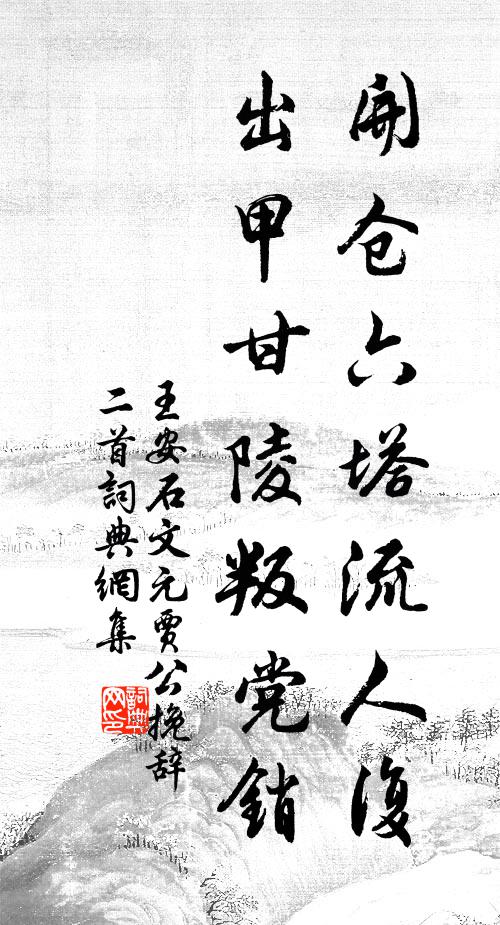 開仓六塔流人復
出甲甘陵叛党銷
王安石文元賈公挽辞
二首詞典網集
詞典
网印